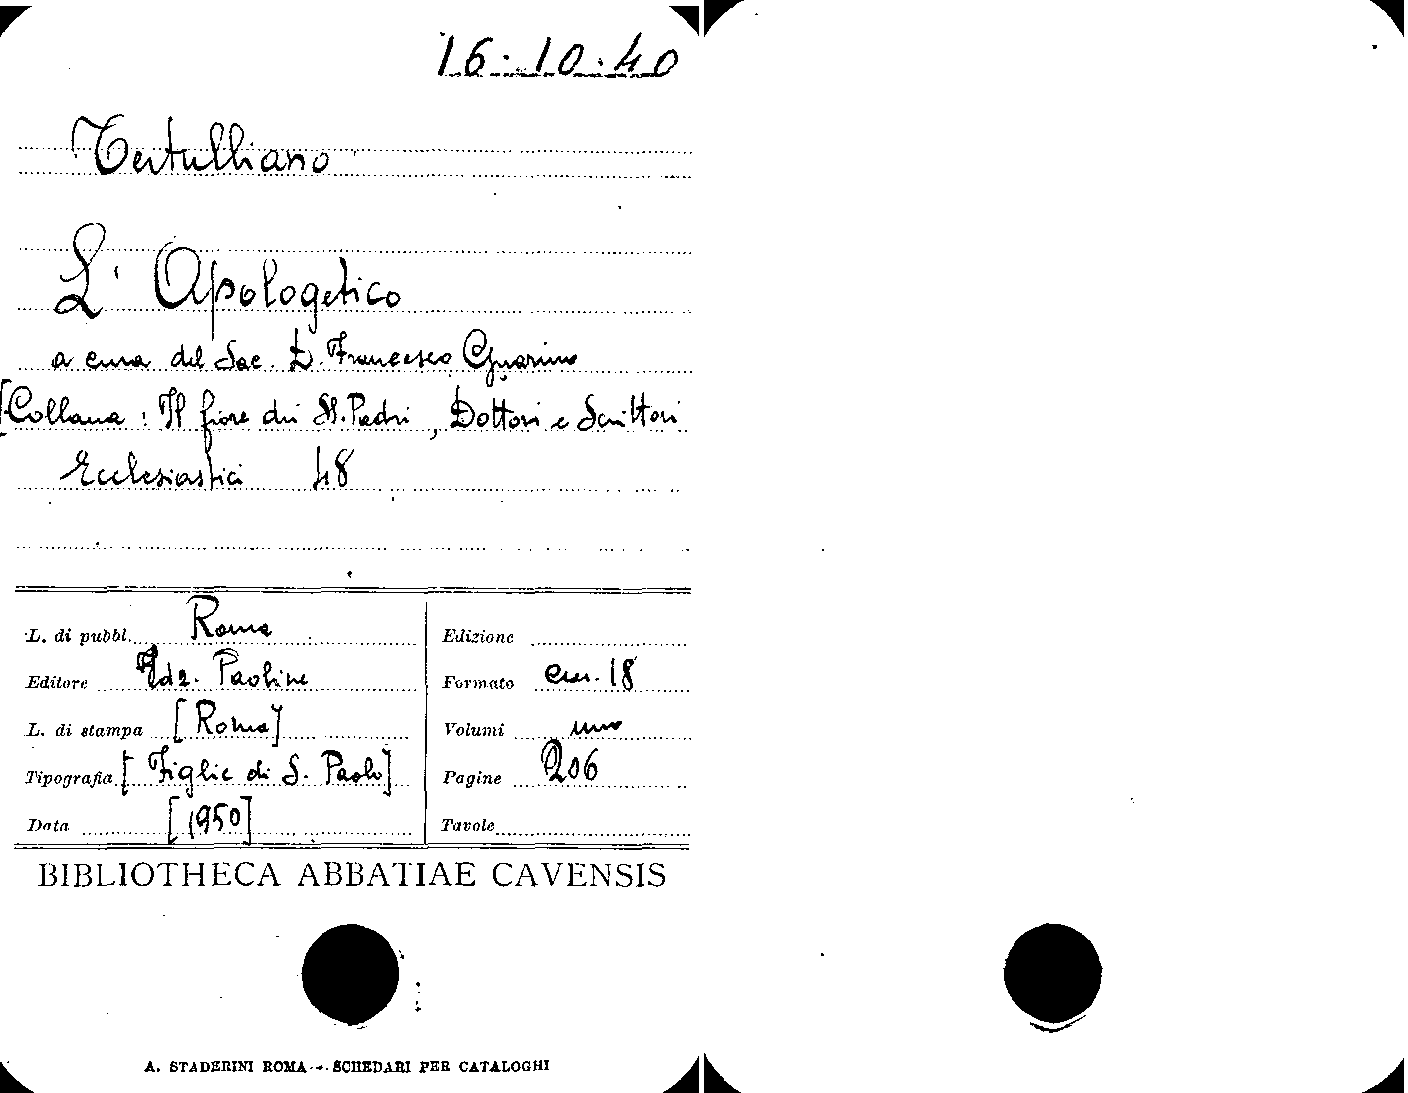 16.10.40
Tertulliano
L'Apologetico
a cura del Sac. D. Francesco Guarino
[Collana: Il fiore dei SS. Padri, Dottori e Scrittori
Ecclesiastici 48
L. di pubbl. Roma
Editore Edz. Paoline
L. di stampa [Roma]
Tipografia [Figlie di S. Paolo]
Data [1950]
Edizione
Formato cm. 18
Volumi uno
Pagine 206
Tavole
BIBLIOTHECA ABBATIAE CAVENSIS
A. STADERINI ROMA - SCHEDARI PER CATALOGHI